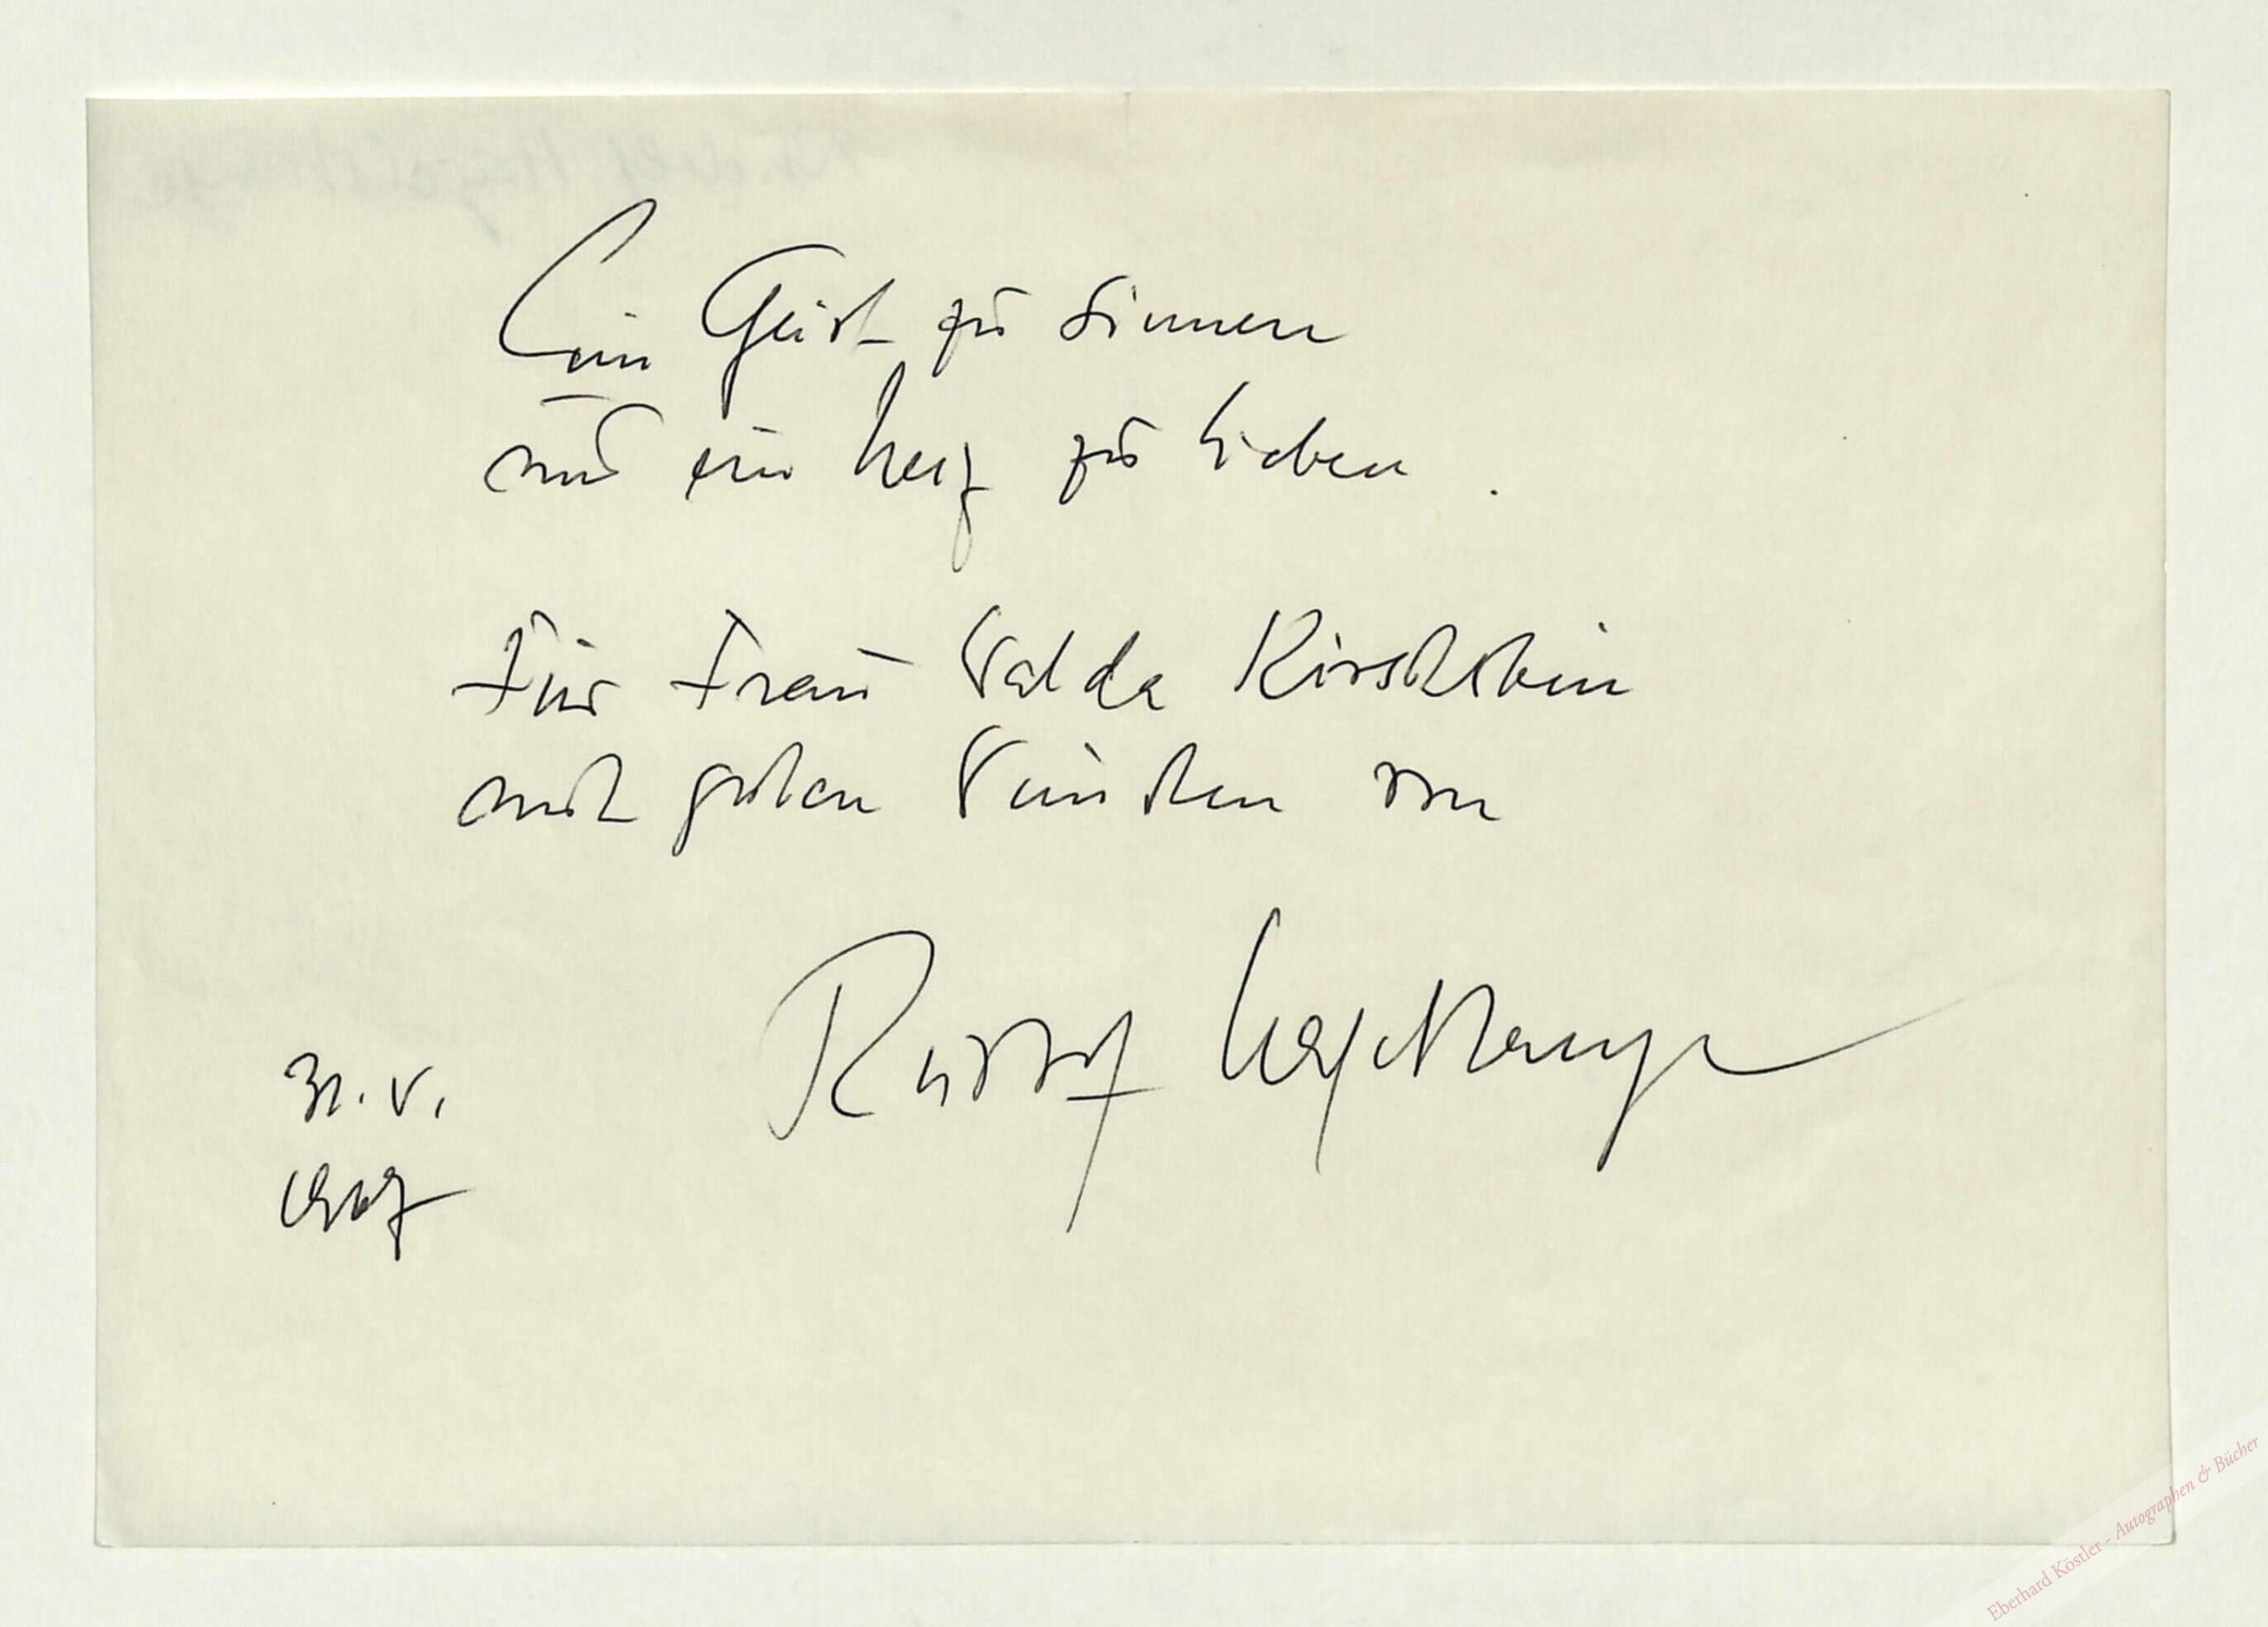 Ein Geist zu sinnen
und ein Herz zu lieben.
Für Frau Walda Kirschstein
mit guten Wünschen von
Rudolf Hagelstange
31. V.
1967
Rudolf Hagelstange
Eberhard Köstler - Autographen & Bücher